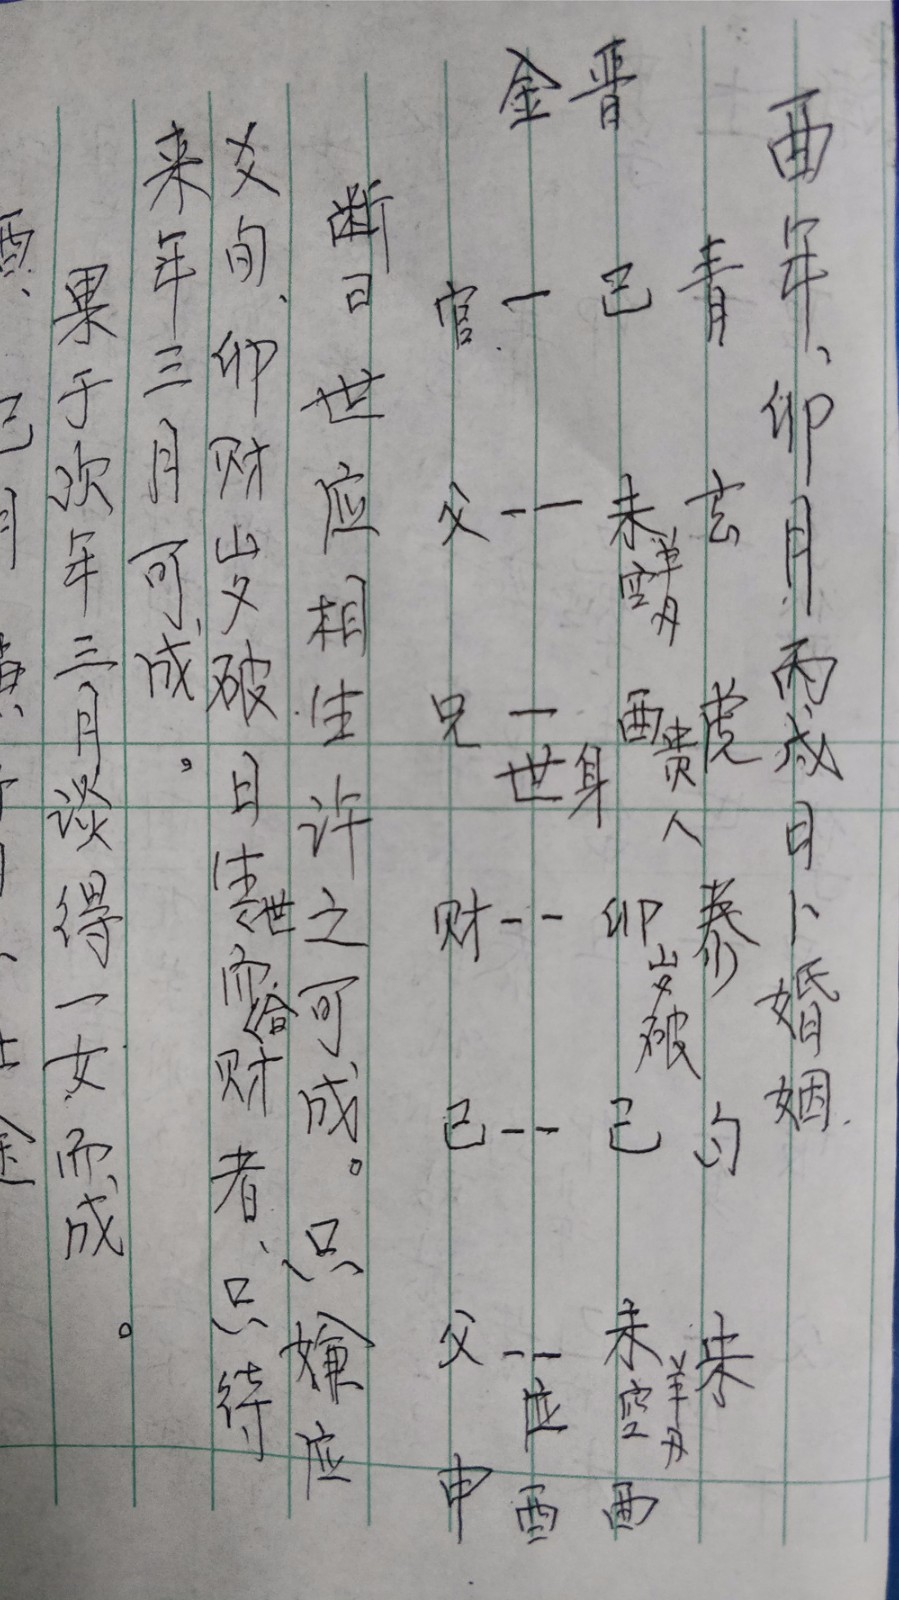 酉年、卯月丙戌日卜婚姻.
青 玄 虎 泰 勾 朱
晋 巳 未 羊刃 空 酉 贵人 卯 岁破 巳 未 羊刃 空 酉
金 官 父 兄 世 身 财 巳 父 应 申 酉
断曰世应相生许之可成。只嫌应
爻旬、卯财岁破日生世而合财者、只待
来年三月可成。
果于次年三月谈得一女而成。
酉、巳月